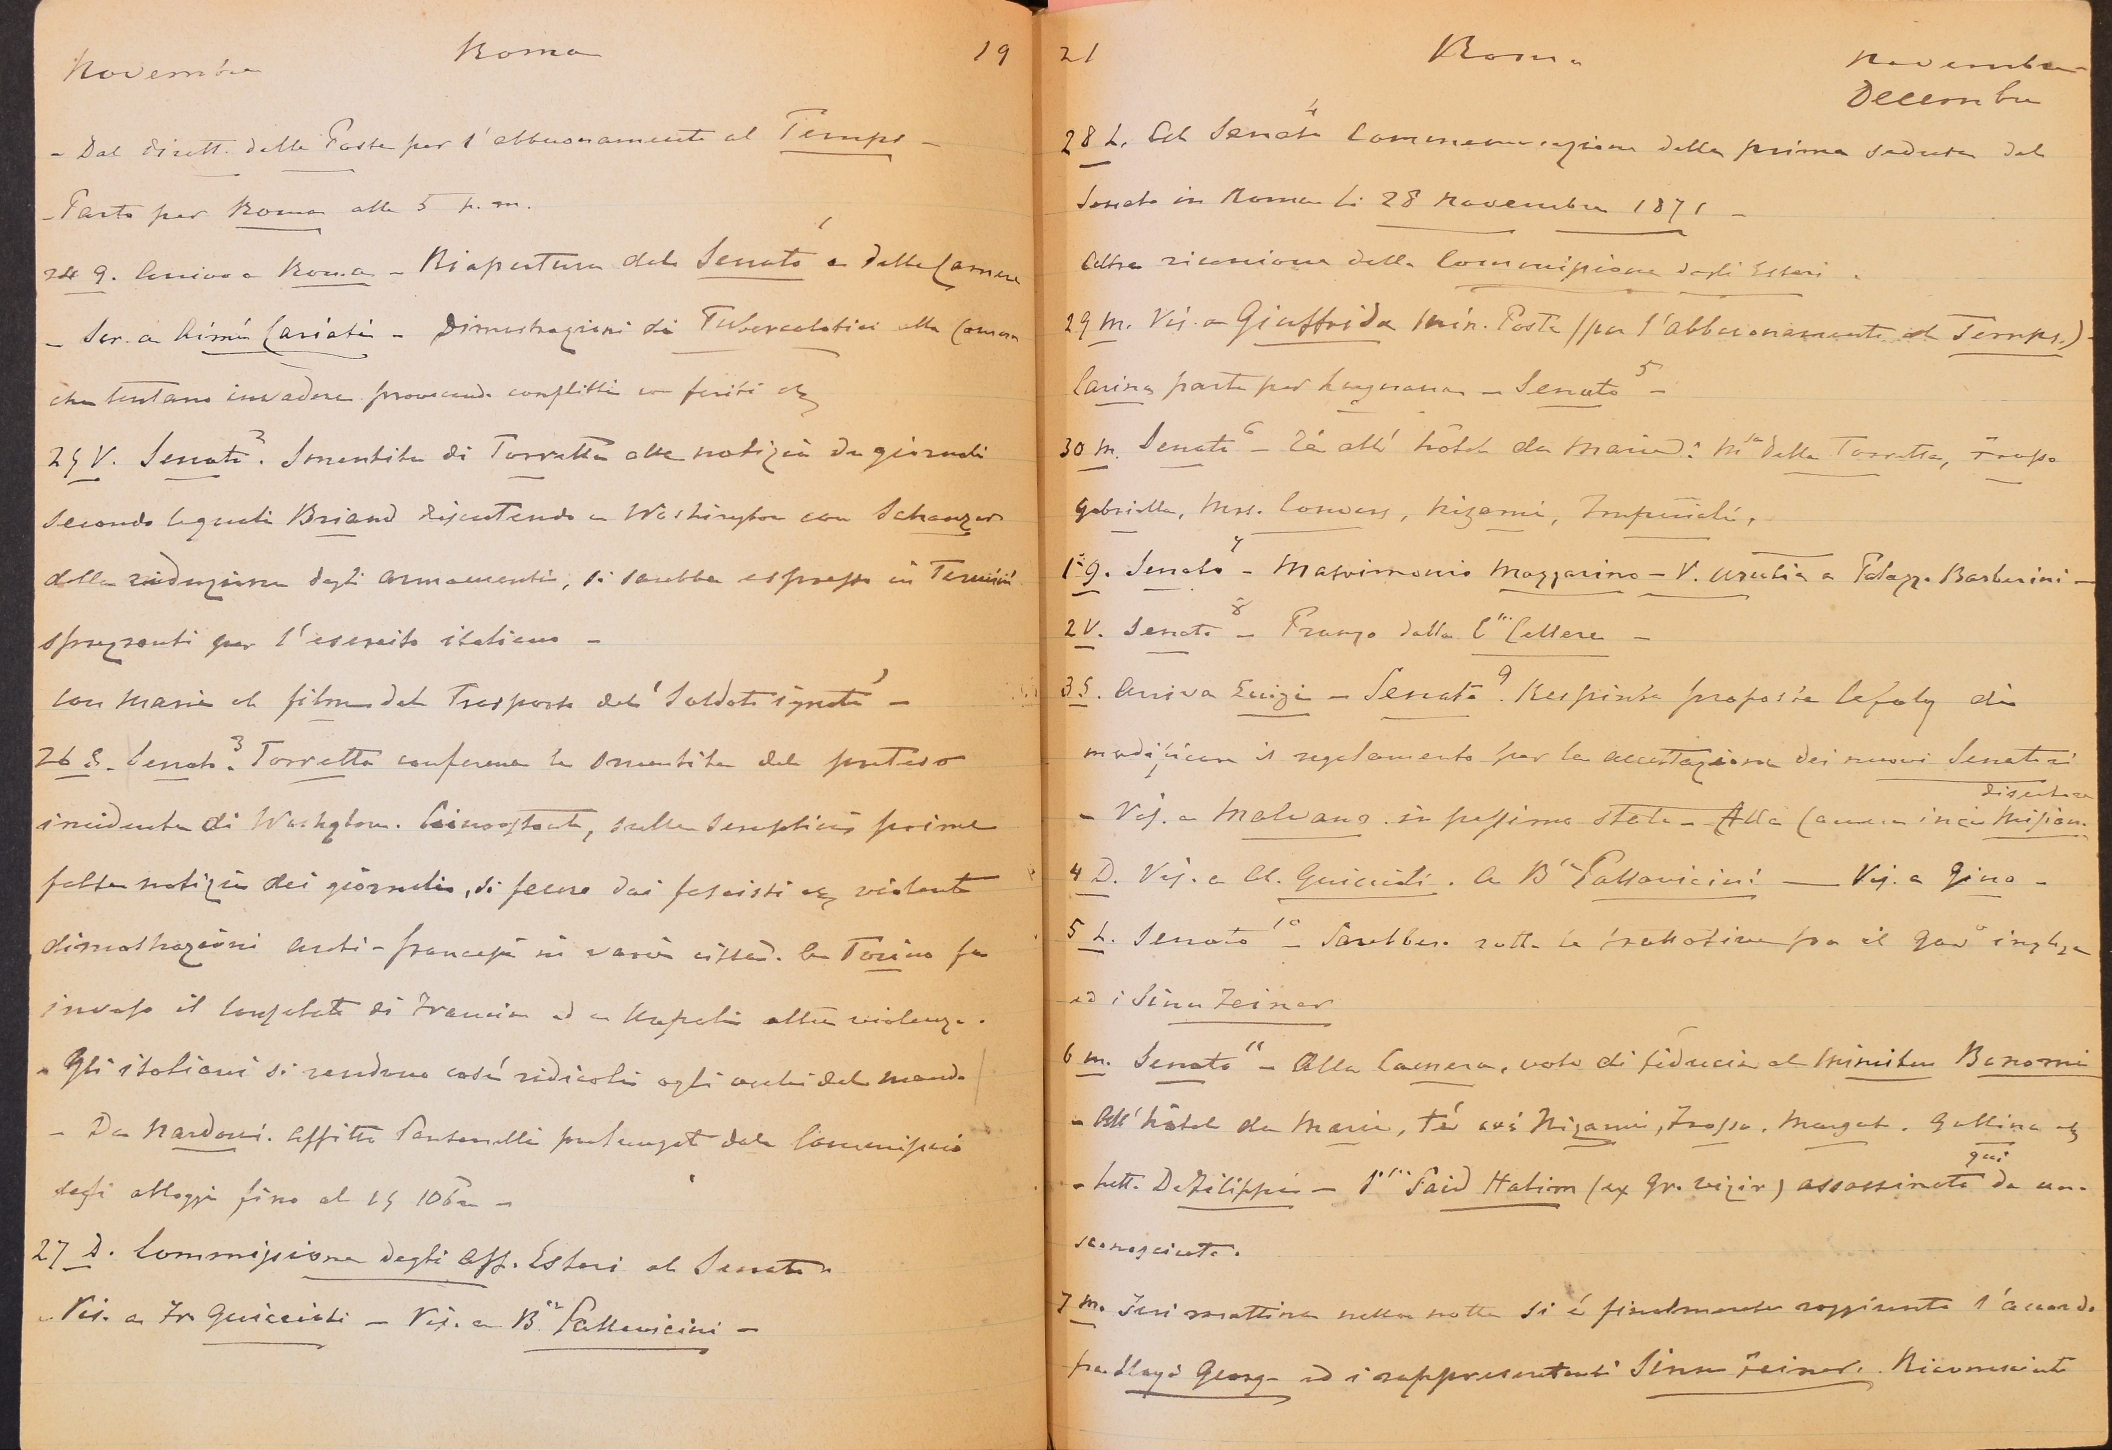 Novembre Roma 19
- Dal dirett. delle Poste per l'abbuonamento al Temps -
- Parto per Roma alle 5 p.m.
24 g. Arrivo a Roma - Riapertura del Senato 1 e della Camera
- Ser. a Cariati - Dimostrazioni di Tubercolotici alla Camera
che tentano invadere provocando conflitti con feriti
25 V. Senato 2. Smentita di Torretta alle notizie da giornali
secondo le quali Briand discutendo a Washington con Schanzer
della riduzione degli armamenti, si sarebbe espresso in termini
sprezzanti per l'esercito italiano -
Con Maria al film del Trasporto del "Soldato ignoto" -
26 S. Senato 3. Torretta conferma la smentita del preteso
incidente di Washgton. Ciononostante, sulle semplici prime
false notizie dei giornali, si fecero dai fascisti violente
dimostrazioni anti-francesi in varie città. A Torino fu
invaso il Consolato di Francia ed a Napoli altre violenze.
- Gli italiani si rendono così ridicoli agli occhi del mondo
- Da Nardoni. Affitto prolungat. dal Commissario
degli alloggi fino al 15 10bre -
27 D. Commissione degli Aff. Esteri al Senato
- Vis. a Fr. Guicciardi - Vis. a Bssa Pallavicini -
21 Roma Novembre-
Decembre
28 L. Al Senato 4 Commemorazione della prima seduta del
Senato in Roma li 28 Novembre 1871 -
Altra riunione della Commissione degli Esteri.
29 M. Vis. a Giuffrida Min. Poste (per l'abbuonamento al Temps.) -
Carina parte per - Senato 5 -
30 M. Senato 6 - Té all'hôtel da Maria: Msa della Torretta, Frasso
Gabriella, Mrs. Convers, Nizami, Imperiali,
1° G. Senato 7 - Matrimonio Mazzarino - V. a Palazzo Barberini -
2 V. Senato 8 - Pranzo dalla Cssa Cellere -
3 S. Arriva Luigi - Senato 9. Respinta proposta Cefaly di
modificare il regolamento per la accettazione dei nuovi Senatori
- Vis. a Malvano in pessimo stato - Alla Camera discutere
4 D. Vis. a Al. Guicciardi. A Bssa Pallavicini — Vis. a Gino -
5 L. Senato 10 - Sarebbero rotte le trattative fra il Govo inglese
ed i Sinn Feiner
6 M. Senato 11 - Alla Camera, voto di fiducia al Minitro Bonomi
- All'hôtel da Maria, té coi Nizami, Frasso, Gallina
- Lett. De Filippi - Said Halim (ex Gr. vizir) assassinato qui da un
sconosciuto.
7 M. Ieri mattina nella notte si é finalmente raggiunto l'accordo
fra Lloyd George ed i rappresentanti Sinn Feiner. Riconosciuto